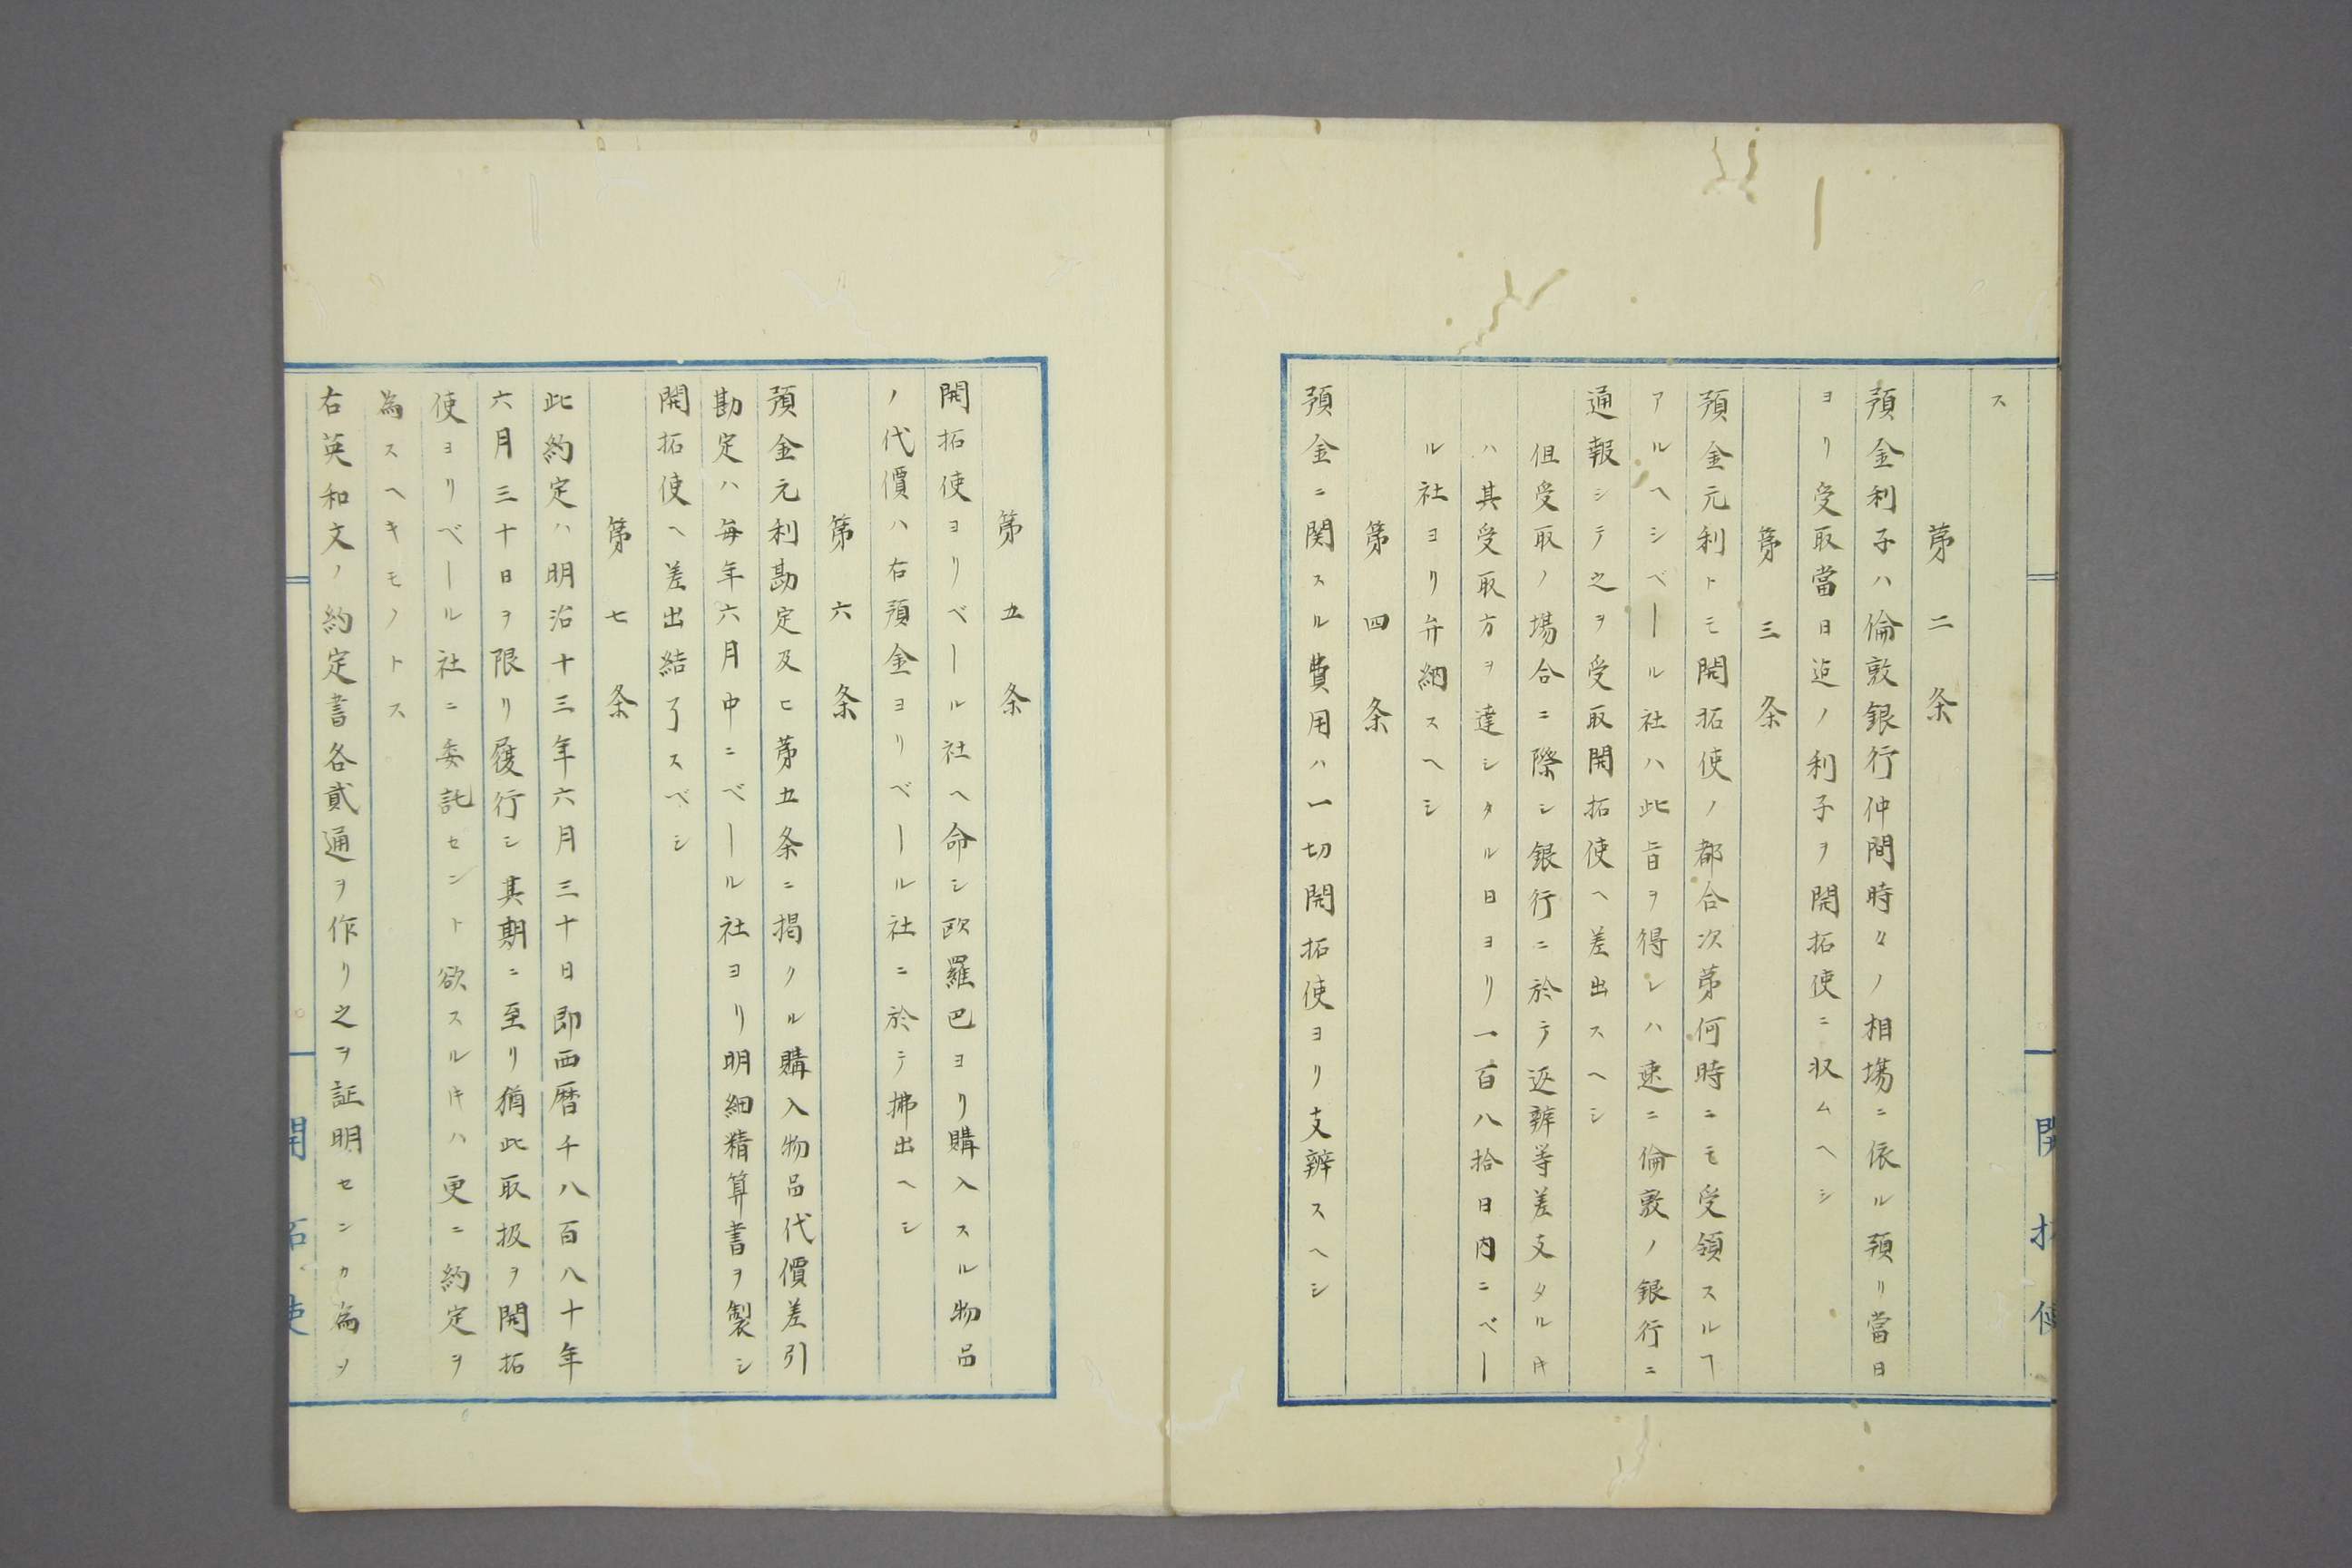 ス
第二条
預金利子ハ倫敦銀行仲間時々ノ相場ニ依ル預リ當日
ヨリ受取當日迠ノ利子ヲ開拓使ニ収ムヘシ
第三条
預金元利トモ開拓使ノ都合次第何時ニモ受領スルヿ
アルヘシベール社ハ此旨ヲ得レハ速ニ倫敦ノ銀行ニ
通報シテ之ヲ受取開拓使ヘ差出スヘシ
但受取ノ場合ニ際シ銀行ニ於テ返辨等差支タルキ
ハ其受取方ヲ達シタル日ヨリ一百八拾日内ニベー
ル社ヨリ弁納スヘシ
第四条
預金ニ関スル費用ハ一切開拓使ヨリ支辨スヘシ
開拓使
第五条
開拓使ヨリベール社ヘ命シ欧羅巴ヨリ購入スル物品
ノ代價ハ右預金ヨリベール社ニ於テ拂出ヘシ
第六条
預金元利勘定及ヒ第五条ニ掲クル購入物品代價差引
勘定ハ毎年六月中ニベール社ヨリ明細精算書ヲ製シ
開拓使ヘ差出結了スベシ
第七条
此約定ハ明治十三年六月三十日即西暦千八百八十年
六月三十日ヲ限リ履行シ其期ニ至リ猶此取扱ヲ開拓
使ヨリベール社ニ委託セント欲スルキハ更ニ約定ヲ
為スヘキモノトス
右英和文ノ約定書各貳通ヲ作リ之ヲ証明センカ為ヲ
開拓使